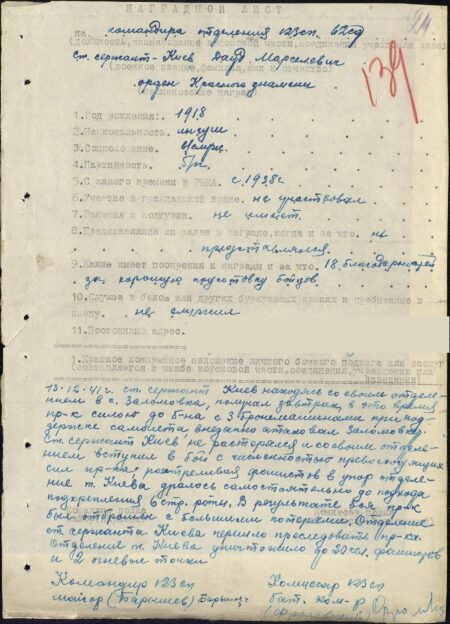 НАГРАДНОЙ ЛИСТ
24
на командира отделения 123 сп. 62 сд
(должность, наименование войсковой части, соединения
ст. сержант - Киев Дауд Марселевич
(воинское звание, фамилия, имя и отчество)
орден Красного знамени
(наименование награды)
139
1. Год рождения: 1918
2. Национальность. ингуш
3. Соцположение. служ.
4. Партийность. б/п
5. С какого времени в РККА. с 1938 г
6. Участие в гражданской войне. не участвовал
7. Ранения и контузии. не имеет.
8. Представлялся ли ранее к награде, когда и за что. не
представлялся.
9. Какие имеет поощрения и награды и за что. 18 благодарностей
за хорошую подготовку бойцов.
10. Служба в белой или других буржуазных армиях и пребывание в
плену. не служил
11. Постоянный адрес.
1. Краткое конкретное изложение личного боевого подвига или заслуг
(составляется в штабе войсковой части, соединения, учреждения или
13.12.41 г. ст. сержант Киев находясь со своим отделе-
нием в с. Заломовка, получал завтрак, в это время
пр-к силою до б-на с 3 бронемашинами при под-
держке самолета внезапно атаковал Заломовку.
Ст. сержант Киев не растерялся и со своим отделе-
нием вступил в бой с численностью превосходящих
сил пр-ка. расстреливая фашистов в упор отделе-
ние т. Киева дралось самостоятельно до подхода
подкрепления 6 стр. роты. В результате боя пр-к
был отброшен с большими потерями. Отделение
ст сержанта Киева перешло преследовать пр-ка.
Отделение т. Киева уничтожило до 20 чел. фашистов
и 2 огневые точки
Командир 123 сп Комиссар 123 сп
майор (Барышев) бат. ком-р